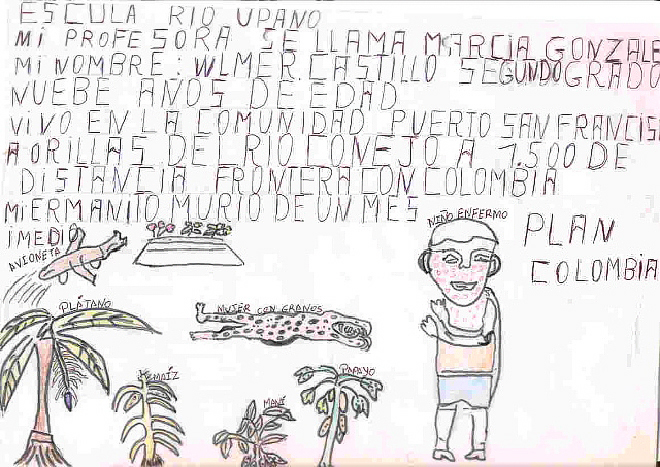 ESCULA RIO UPANO
Mi PROFESORA SE LLAMA MARCIA GONZALE
Mi NOMBRE: WLMER CASTILLO SEGUNDO GRADO
NUEBE AÑOS DE EDAD
ViVO EN LA COMUNIDAD PUERTO SAN FRANCIS
A ORILLAS DEL RIO CONEJO A 1.500 DE
DiSTANCIA FRONTERA CON COLOMBIA
Mi ERMANITO MURIO DE UN MES
I MEDIO
AVIONETA
NIÑO ENFERMO
PLAN
COLOMBIA
PLÁTANO
MUJER CON GRANOS
MAÍZ
MANÍ
PAPAYO